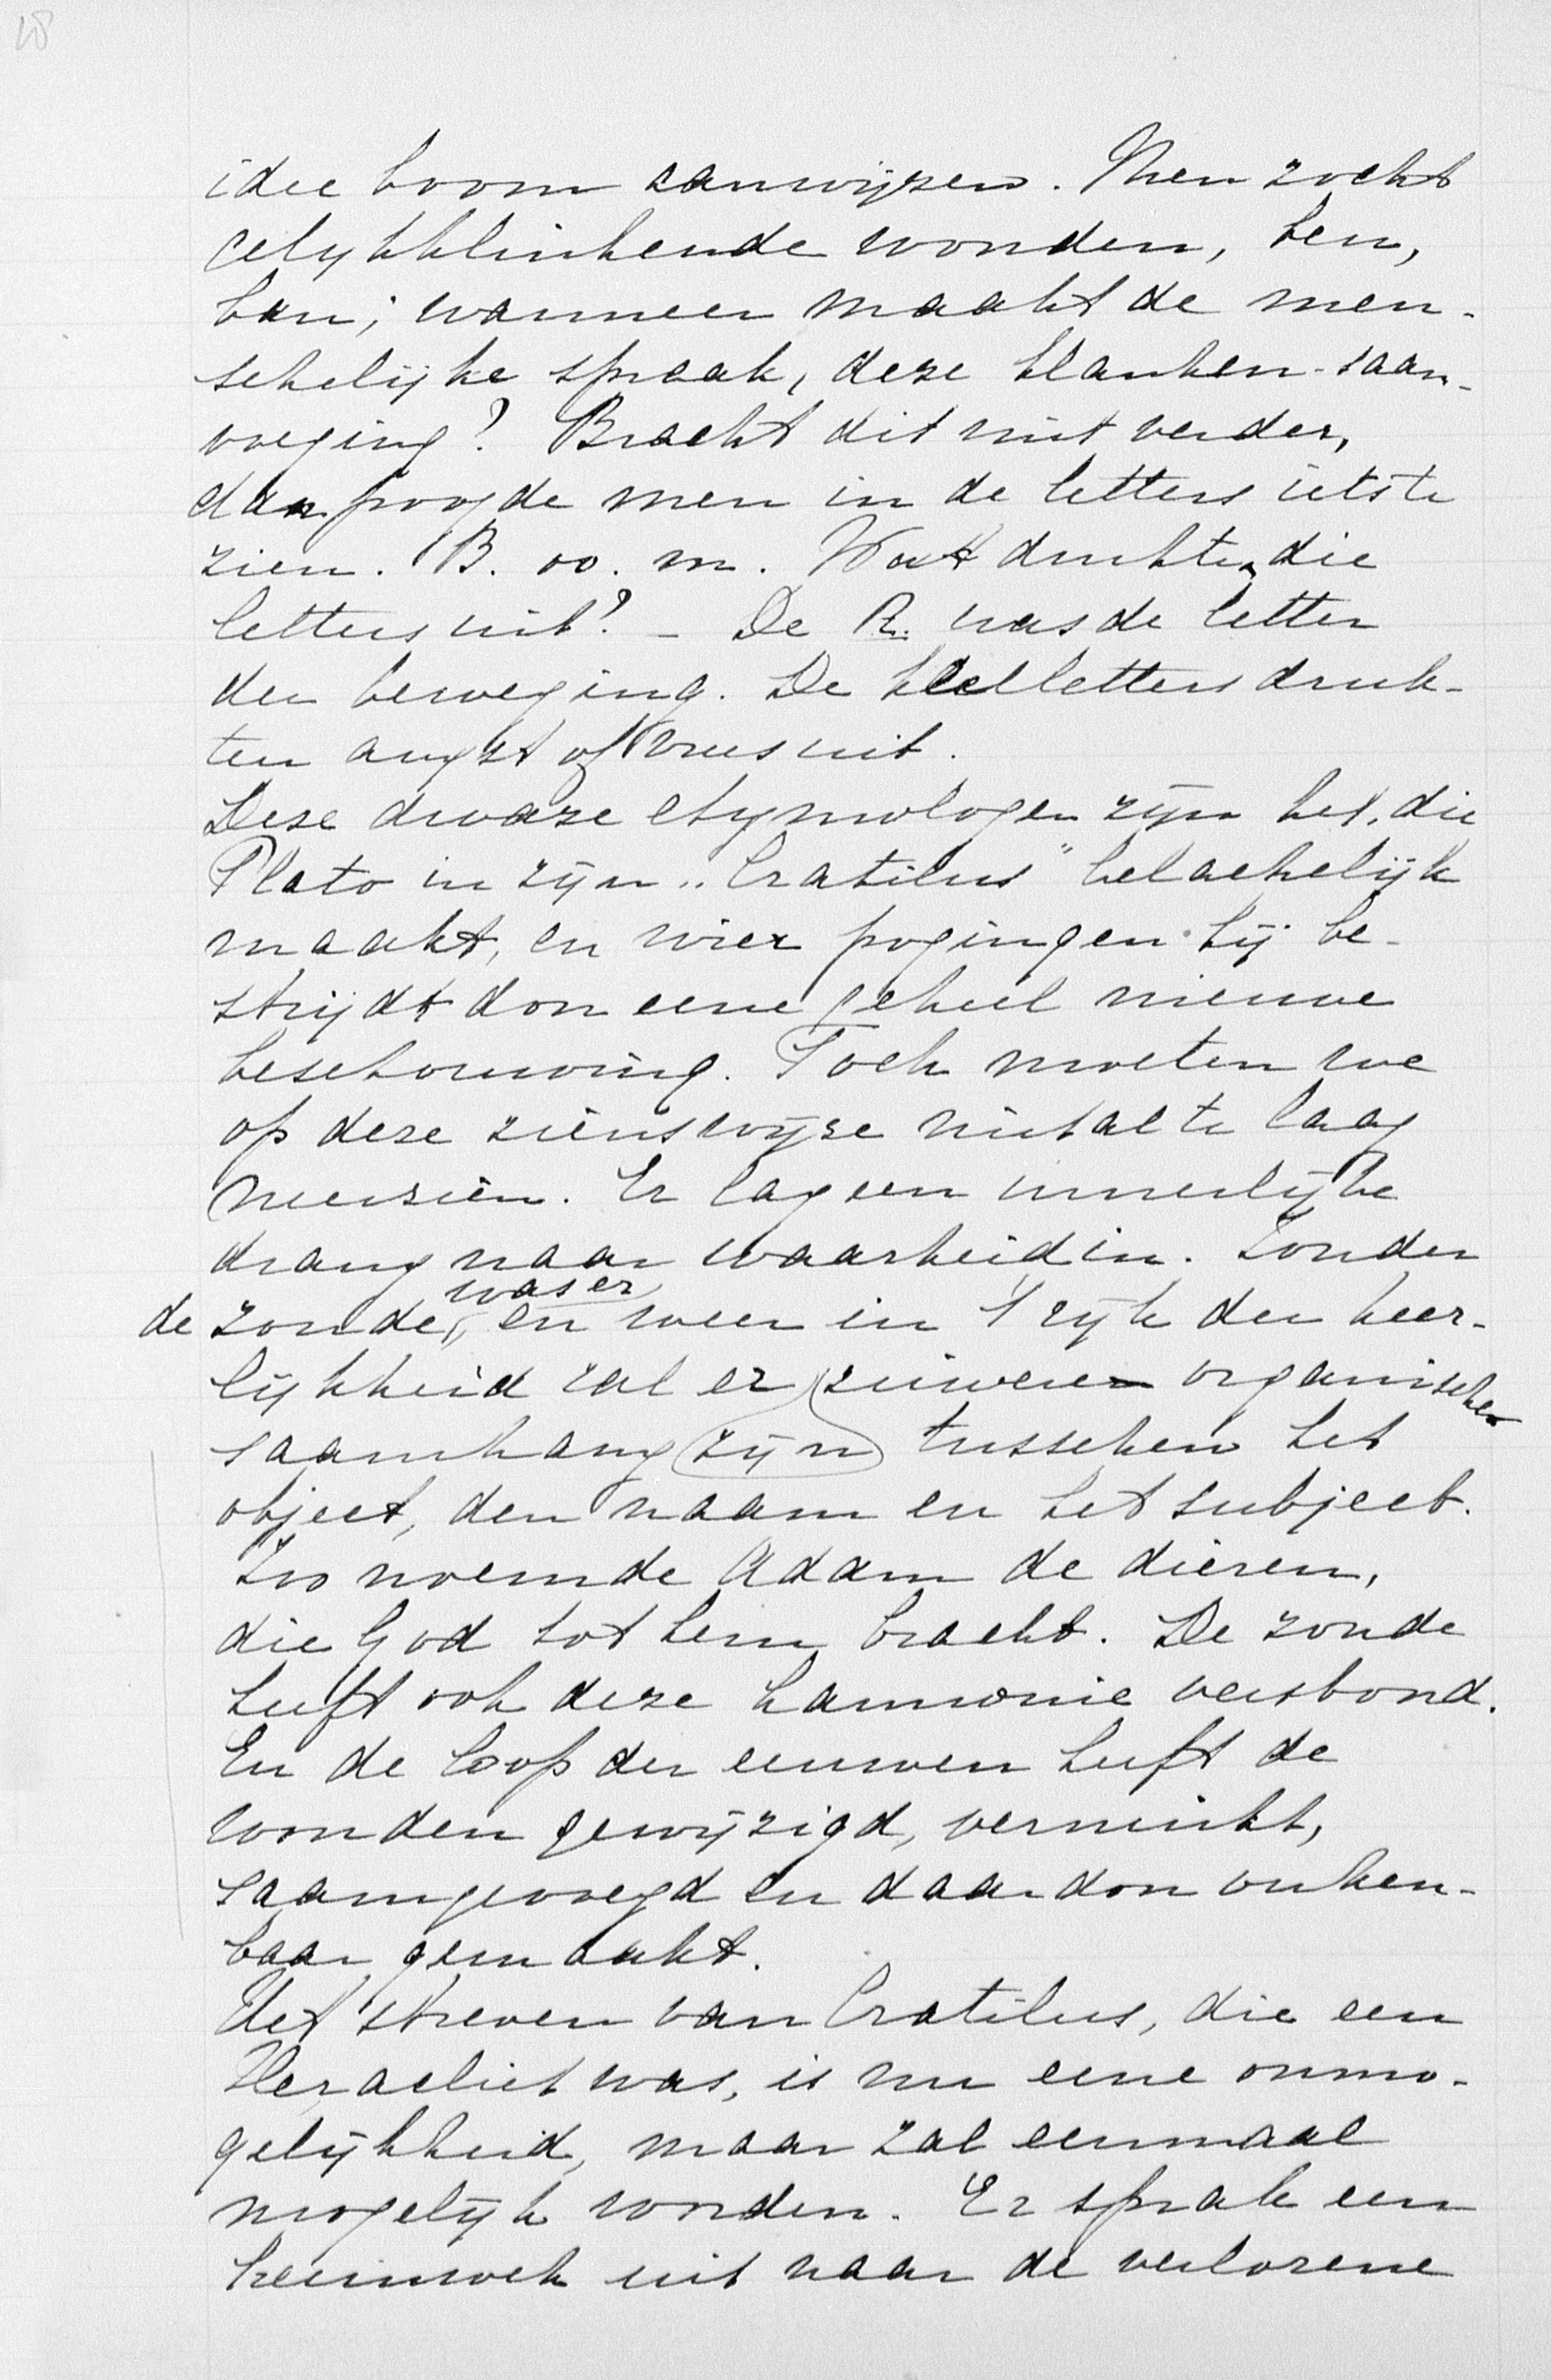 idee boom aanwijzen. Men zocht
gelykklinkende woorden, ben,
ban; wanneer maakt de men-
schelijke spraak, deze klanken-saam-
voeging? Bracht dit niet verder,
dan poogde men in de letters iets te
zien. B. oo. m. Wat drukten die
letters uit? – De R. was de letter
der beweging. De keelletters druk-
ten angst of vrees uit.
Deze dwaze etymologen zijn het, die
Plato in zijn „Cratilus" belachelijk
maakt, en wier pogingen hij be-
strijdt door eene geheel nieuwe
beschouwing. Toch moeten we
op deze zienswijze niet al te laag
neerzien. Er lag een innerlijke
drang naar waarheid in. Zonder
de zonde, was er, en weer in 't rijk der heer-
lijkheid zal er zuivere organische
saamhang zijn tusschen het
object, den naam en het subject.
Zoo noemde Adam de dieren,
die God tot hem bracht. De zonde
heeft ook deze harmonie verstoord.
En de loop der eeuwen heeft de
woorden gewijzigd, verminkt,
saamgevoegd en daardoor onken-
baar gemaakt.
Het streven van Cratilus, die een
Heracliet was, is nu eene onmo-
gelijkheid, maar zal eenmaal
mogelijk worden. Er sprak een
heimweh uit naar de verlorene